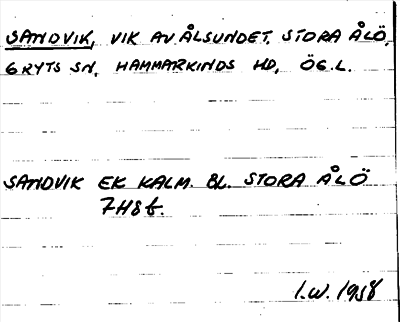 SANDVIK, VIK AV ÅLSUNDET, STORA ÅLÖ,
GRYTS SN, HAMMARKINDS HD, ÖG.L.
SANDVIK EK KALM. BL. STORA ÅLÖ
7H8f.
I.W. 1958